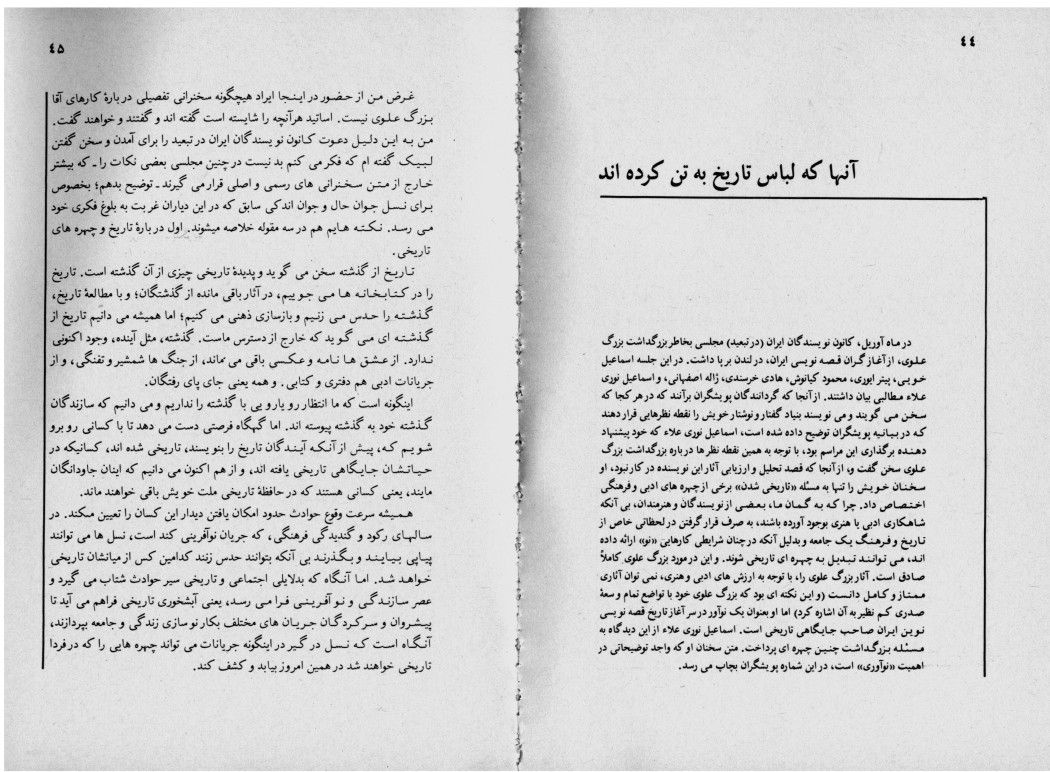 ٤٤
آنها که لباس تاریخ به تن کرده اند
در ماه آوریل، کانون نویسندگان ایران (در تبعید) مجلسی بخاطر بزرگداشت بزرگ
علوی، از آغازگران قصه نویسی ایران، در لندن برپا داشت. در این جلسه اسماعیل
خویی، پیتر ایوری، محمود کیانوش، هادی خرسندی، ژاله اصفهانی، و اسماعیل نوری
علاء مطالبی بیان داشتند. از آنجا که گردانندگان پویشگران برآنند که در هر کجا که
سخن می گویند و می نویسند بنیاد گفتار و نوشتار خویش را نقطه نظرهایی قرار دهند
که در بیانیه پویشگران توضیح داده شده است، اسماعیل نوری علاء که خود پیشنهاد
دهنده برگذاری این مراسم بود، با توجه به همین نقطه نظرها درباره بزرگداشت بزرگ
علوی سخن گفت و، از آنجا که قصد تحلیل و ارزیابی آثار این نویسنده در کار نبود، او
سخنان خویش را تنها به مسئله «تاریخی شدن» برخی از چهره های ادبی و فرهنگی
اختصاص داد. چرا که به گمان ما، بعضی از نویسندگان و هنرمندان، بی آنکه
شاهکاری ادبی یا هنری بوجود آورده باشند، به صرف قرار گرفتن در لحظاتی خاص از
تاریخ و فرهنگ یک جامعه و بدلیل آنکه در چنان شرایطی کارهایی «نو» ارائه داده
اند، می توانند تبدیل به چهره ای تاریخی شوند. و این در مورد بزرگ علوی کاملاً
صادق است. آثار بزرگ علوی را، با توجه به ارزش های ادبی و هنری، نمی توان آثاری
ممتاز و کامل دانست (و این نکته ای بود که بزرگ علوی خود با تواضع تمام و سعهٔ
صدری کم نظیر به آن اشاره کرد) اما او بعنوان یک نوآور در سر آغاز تاریخ قصه نویسی
نوین ایران صاحب جایگاهی تاریخی است. اسماعیل نوری علاء از این دیدگاه به
مسئله بزرگداشت چنین چهره ای پرداخت. متن سخنان او که واجد توضیحاتی در
اهمیت «نوآوری» است، در این شماره پویشگران بچاپ می رسد.
٤۵
غرض من از حضور در اینجا ایراد هیچگونه سخنرانی تفصیلی دربارهٔ کارهای آقا
بزرگ علوی نیست. اساتید هرآنچه را شایسته است گفته اند و گفتند و خواهند گفت.
من به این دلیل دعوت کانون نویسندگان ایران در تبعید را برای آمدن و سخن گفتن
لبیک گفته ام که فکر می کنم بد نیست در چنین مجلسی بعضی نکات را ـ که بیشتر
خارج از متن سخنرانی های رسمی و اصلی قرار می گیرند ـ توضیح بدهم؛ بخصوص
برای نسل جوان حال و جوان اندکی سابق که در این دیاران غربت به بلوغ فکری خود
می رسد. نکته هایم هم در سه مقوله خلاصه میشوند. اول دربارهٔ تاریخ و چهره های
تاریخی.
تاریخ از گذشته سخن می گوید و پدیدهٔ تاریخی چیزی از آن گذشته است. تاریخ
را در کتابخانه ها می جوییم، در آثار باقی مانده از گذشتگان؛ و با مطالعهٔ تاریخ،
گذشته را حدس می زنیم و بازسازی ذهنی می کنیم؛ اما همیشه می دانیم تاریخ از
گذشته ای می گوید که خارج از دسترس ماست. گذشته، مثل آینده، وجود اکنونی
ندارد. از عشق ها نامه و عکسی باقی می ماند، از جنگ ها شمشیر و تفنگی، و از
جریانات ادبی هم دفتری و کتابی. و همه یعنی جای پای رفتگان.
اینگونه است که ما انتظار رویارویی با گذشته را نداریم و می دانیم که سازندگان
گذشته خود به گذشته پیوسته اند. اما گهگاه فرصتی دست می دهد تا با کسانی روبرو
شویم که، پیش از آنکه آیندگان تاریخ را بنویسند، تاریخی شده اند، کسانیکه در
حیاتشان جایگاهی تاریخی یافته اند، و از هم اکنون می دانیم که اینان جاودانگان
مایند، یعنی کسانی هستند که در حافظهٔ تاریخی ملت خویش باقی خواهند ماند.
همیشه سرعت وقوع حوادث حدود امکان یافتن دیدار این کسان را تعیین میکند. در
سالهای رکود و گندیدگی فرهنگی، که جریان نوآفرینی کند است، نسل ها می توانند
پیاپی بیایند و بگذرند بی آنکه بتوانند حدس زنند کدامین کس از میانشان تاریخی
خواهد شد. اما آنگاه که بدلایلی اجتماعی و تاریخی سیر حوادث شتاب می گیرد و
عصر سازندگی و نوآفرینی فرا می رسد، یعنی آبشخوری تاریخی فراهم می آید تا
پیشروان و سرکردگان جریان های مختلف بکار نوسازی زندگی و جامعه بپردازند،
آنگاه است که نسل درگیر در اینگونه جریانات می تواند چهره هایی را که در فردا
تاریخی خواهند شد در همین امروز بیابد و کشف کند.